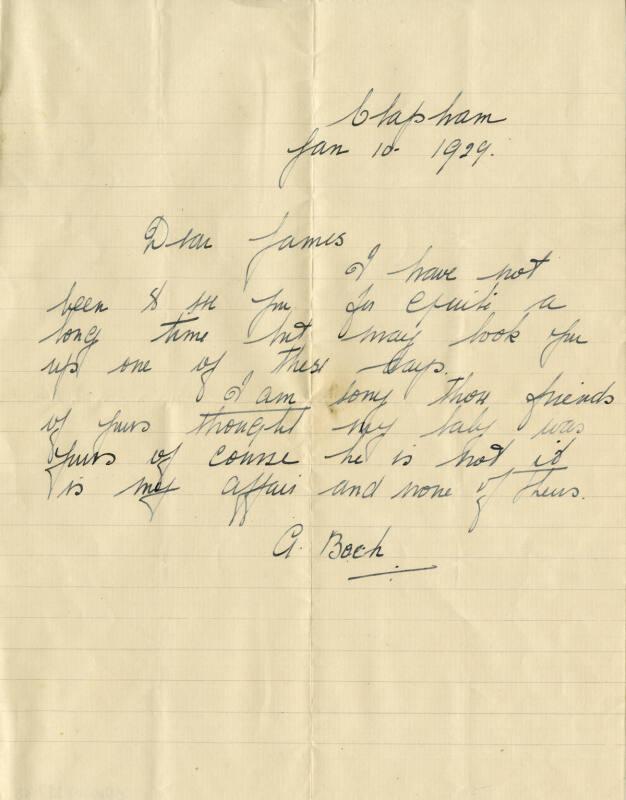 Clapham
Jan 10- 1929.
Dear James
I have not
been to see you for quite a
long time but may look you
up one of these days.
I am sorry those friends
of yours thought my baby was
yours of course he is not it
is my affair and none of theirs.
A. Boch